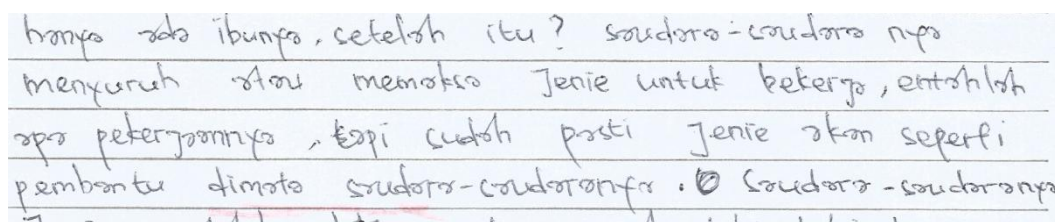 hanya ada ibunya, setelah itu? saudara-saudara nya
menyuruh atau memaksa Jenie untuk bekerja, entahlah
apa pekerjaannya, tapi sudah pasti Jenie akan seperti
pembantu dimata saudara-saudaranya. Saudara-saudaranya